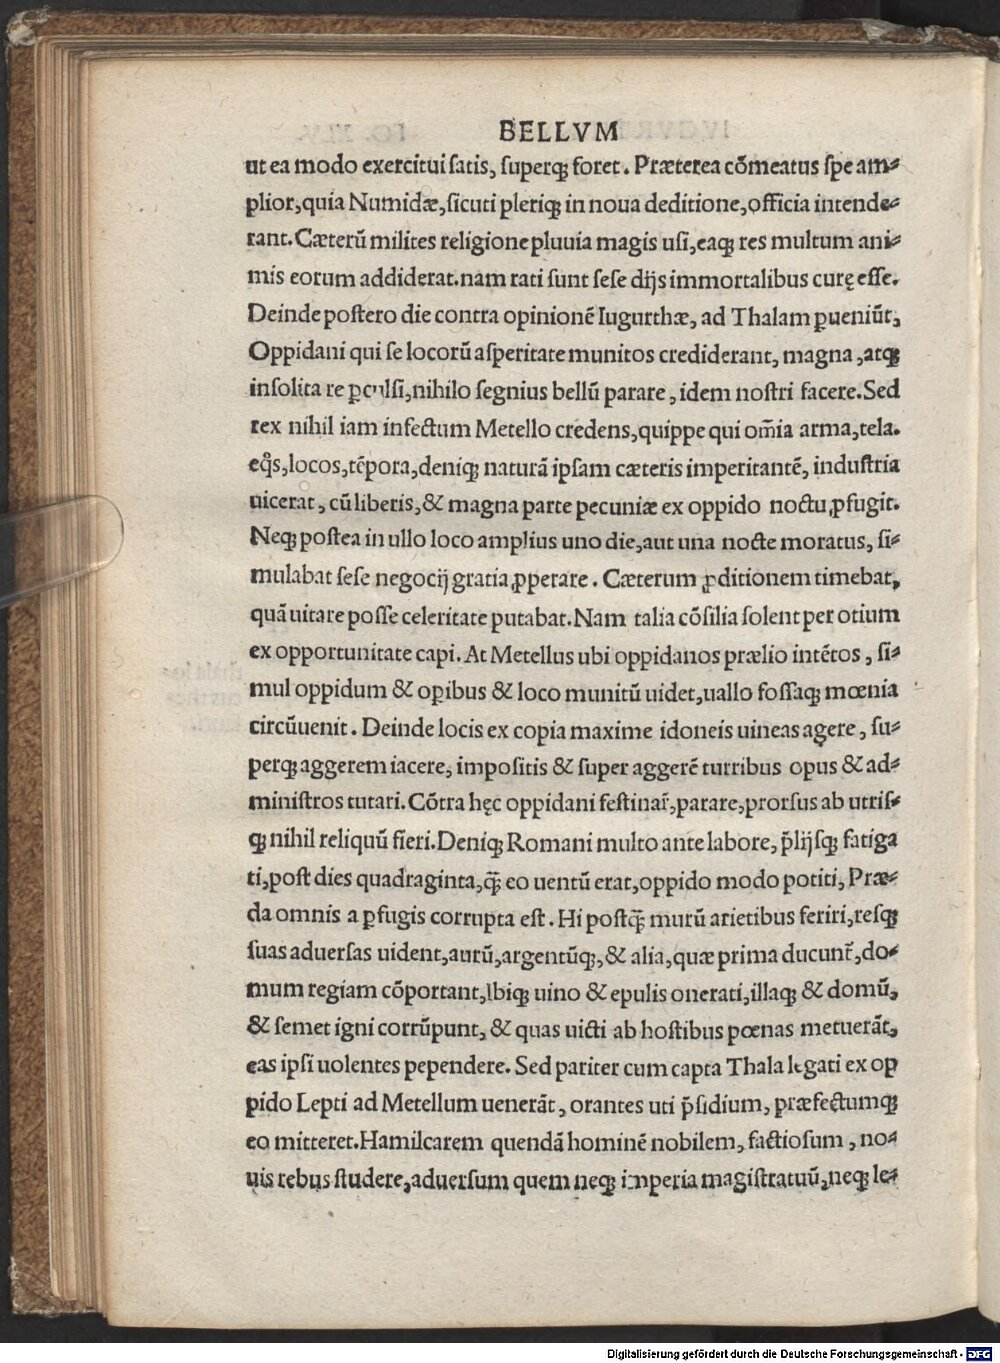 BELLVM
ut ea modo exercitui ſatis, ſuperq; foret. Præterea cõmeatus ſpe am⸗
plior, quia Numidæ, ſicuti pleriq; in noua deditione, officia intende⸗
rant. Cæterũ milites religione pluuia magis uſi, eaq; res multum ani⸗
mis eorum addiderat. nam rati ſunt ſeſe dijs immortalibus curę eſſe.
Deinde poſtero die contra opinionẽ Iugurthæ, ad Thalam ꝑueniũt,
Oppidani qui ſe locorũ aſperitate munitos crediderant, magna, atq;
inſolita re ꝑculſi, nihilo ſegnius bellũ parare, idem noſtri facere. Sed
rex nihil iam infectum Metello credens, quippe qui om̃ia arma, tela.
eq̃s, locos, tẽpora, deniq; naturã ipſam cæteris imperitantẽ, induſtria
uicerat, cũ liberis, & magna parte pecuniæ ex oppido noctu ꝓfugit.
Neq; poſtea in ullo loco amplius uno die, aut una nocte moratus, ſi⸗
mulabat ſeſe negocij gratia ꝓperare. Cæterum ꝓditionem timebat,
quã uitare poſſe celeritate putabat. Nam talia cõſilia ſolent per otium
ex opportunitate capi. At Metellus ubi oppidanos prælio intẽtos, ſi⸗
mul oppidum & oꝑibus & loco munitũ uidet, uallo foſſaq; mœnia
circũuenit. Deinde locis ex copia maxime idoneis uineas agere, ſu⸗
perq; aggerem iacere, impoſitis & ſuper aggerẽ turribus opus & ad⸗
miniſtros tutari. Cõtra hęc oppidani feſtinar̃, parare, prorſus ab utriſ⸗
q; nihil reliquũ fieri. Deniq; Romani multo ante labore, p̃lijſq; fatiga
ti, poſt dies quadraginta, q̃; eo uentũ erat, oppido modo potiti, Præ⸗
da omnis a ꝑfugis corrupta eſt. Hi poſtq̃; murũ arietibus feriri, reſq;
ſuas aduerſas uident, aurũ, argentũq;, & alia, quæ prima ducunt᷑, do⸗
mum regiam cõportant, Ibiq; uino & epulis onerati, illaq; & domũ,
& ſemet igni corrũpunt, & quas uicti ab hoſtibus pœnas metuerãt,
eas ipſi uolentes pependere. Sed pariter cum capta Thala legati ex op
pido Lepti ad Metellum uenerãt, orantes uti p̃ſidium, præfectumq;
eo mitteret. Hamilcarem quendã hominẽ nobilem, factioſum, no⸗
uis rebus ſtudere, aduerſum quem neq; imperia magiſtratuũ, neq; le⸗
Digitalisierung gefördert durch die Deutsche Forschungsgemeinschaft - DFG